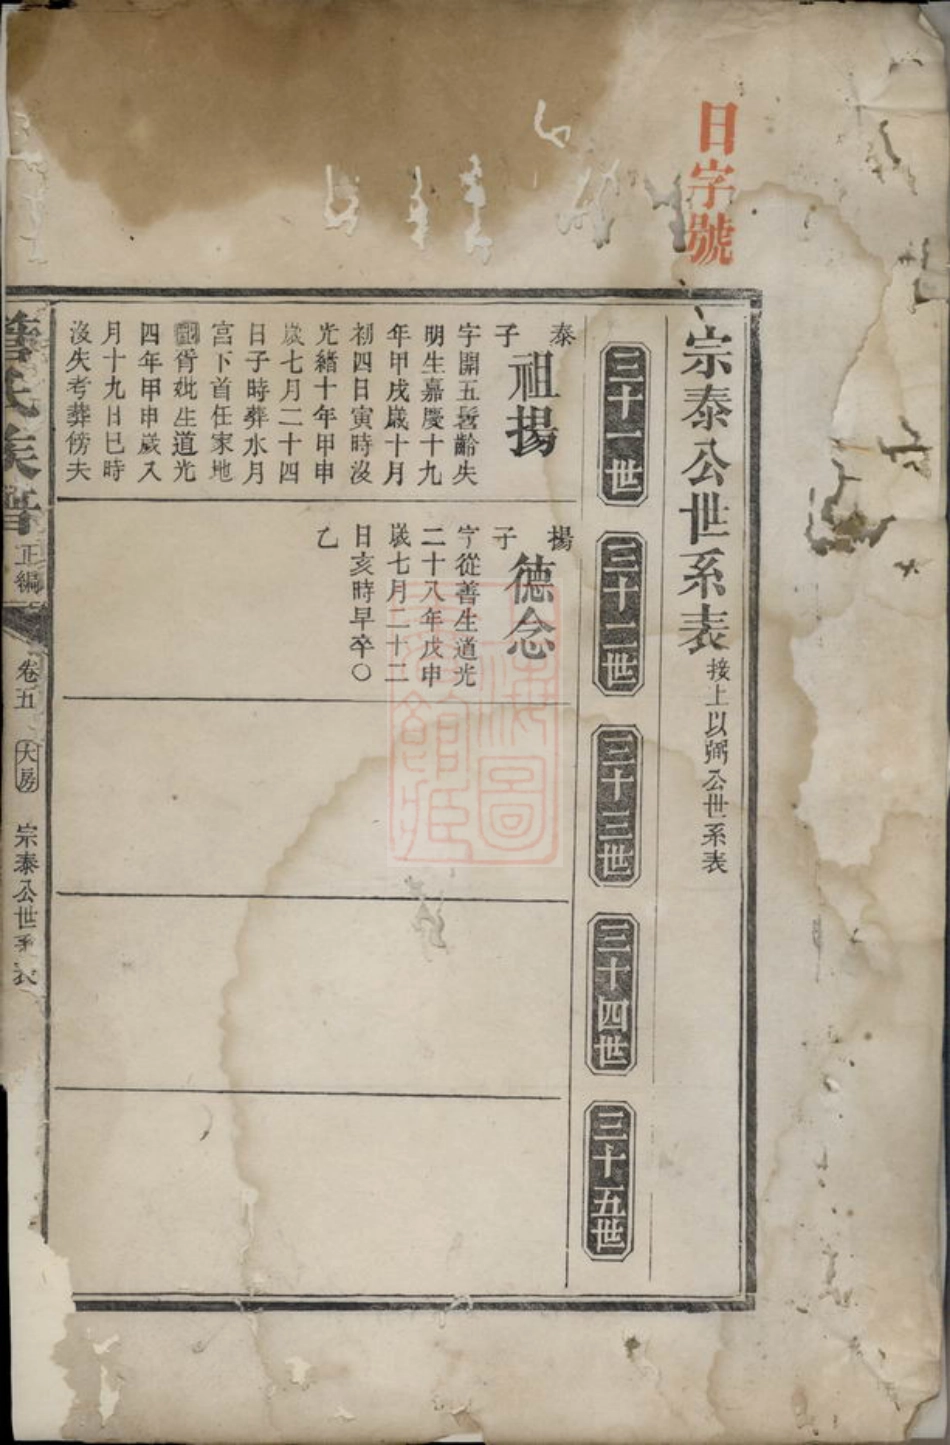 日字號
宗泰公世系表
接上以弼公世系表
三十一世
三十二世
三十三世
三十四世
三十五世
泰子
祖揚
字開五髫齡失
明生嘉慶十九
年甲戌歲十月
初四日寅時沒
光緒十年甲申
歲七月二十四
日子時葬水月
宮下首任家地
胥妣生道光
四年甲申歲八
月十九日巳時
沒失考葬傍夫
揚子
德念
字從善生道光
二十八年戊申
歲七月二十二
日亥時早卒〇
乙
氏族譜
正編
卷五
大房
宗泰公世系表